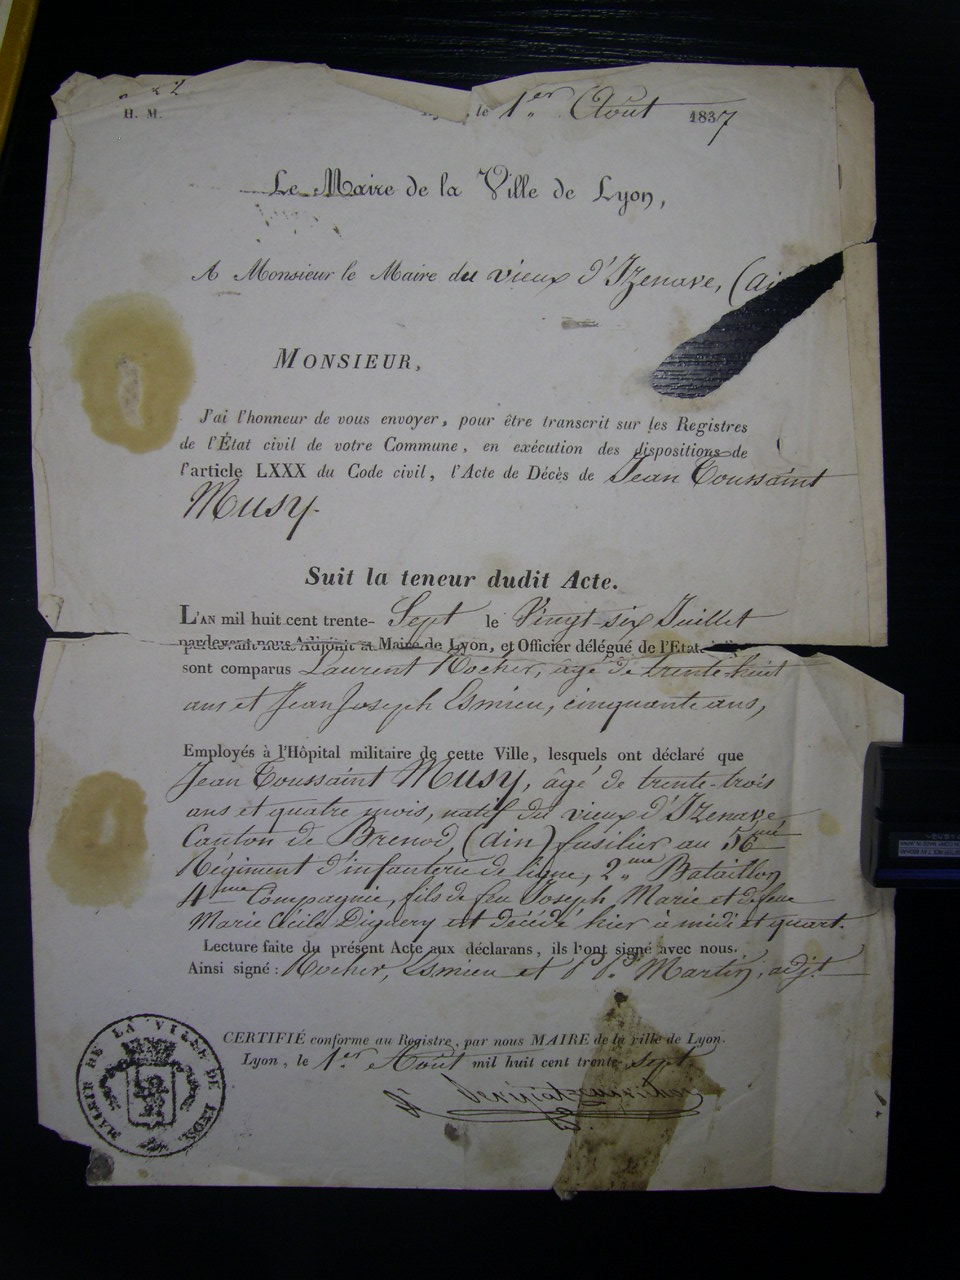 H. M.
Lyon, le 1er Août 1837
Le Maire de la Ville de Lyon,
A Monsieur le Maire du vieux d'Izenave, (ain
MONSIEUR,
J'ai l'honneur de vous envoyer, pour être transcrit sur les Registres
de l'État civil de votre Commune, en exécution des dispositions de
l'article LXXX du Code civil, l'Acte de Décès de Jean Toussaint
Musy.
Suit la teneur dudit Acte.
L'AN mil huit cent trente-Sept le Vingt-six Juillet
pardevant nous Adjoint au Maire de Lyon, et Officier délégué de l'Etat
sont comparus Laurent Rocher, âgé de trente-huit
ans et Jean Joseph Esmieu, cinquante ans,
Employés à l'Hôpital militaire de cette Ville, lesquels ont déclaré que
Jean Toussaint Musy, âgé de trente-trois
ans et quatre mois, natif du vieux d'Izenave,
Canton de Brenod, (ain) fusilier au 56me
Régiment d'infanterie de ligne, 2me Bataillon
4me Compagnie, fils de feu Joseph Marie et de feue
Marie Cécile Diguery est décédé hier à midi et quart.
Lecture faite du présent Acte aux déclarans, ils l'ont signé avec nous.
Ainsi signé: Rocher, Esmieu et Martin, adjt
CERTIFIÉ conforme au Registre, par nous MAIRE de la ville de Lyon.
Lyon, le 1er Août mil huit cent trente-sept
MAIRIE DE LA VILLE DE LYON